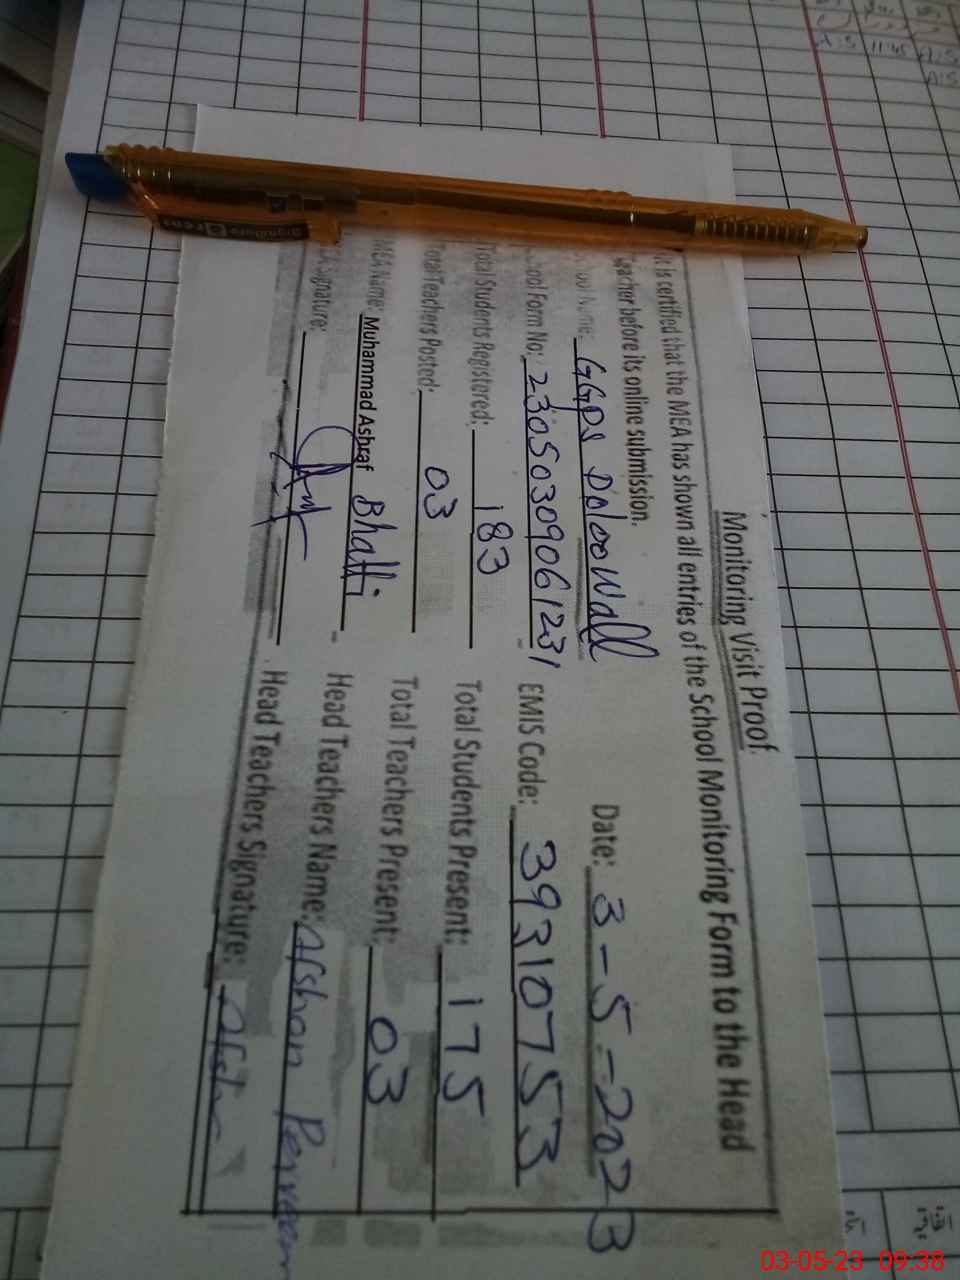 Monitoring Visit Proof
It is certified that the MEA has shown all entries of the School Monitoring Form to the Head
Teacher before its online submission.
School Name: GGPS Doloowall Date: 3-5-2023
School Form No: 23050309061231 EMIS Code: 39310753
Total Students Registered: 183 Total Students Present: 175
Total Teachers Posted: 03 Total Teachers Present: 03
MEA Name: Muhammad Ashraf Bhatti Head Teachers Name: Afshan Perveen
MEA Signature: Head Teachers Signature: Afshan
03-05-23 09:38